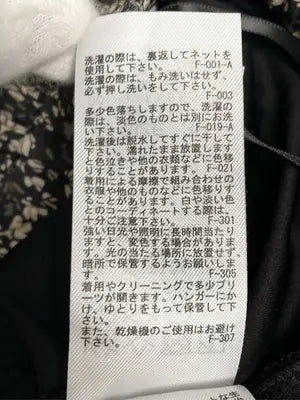 洗濯の際は、裏返してネットを
使用して下さい。 F-001-A
洗濯の際は、もみ洗いはせず、
必ず押し洗いをして下さい。
F-003
多少色落ちしますので、洗濯の
際は、淡色のものとは別にお洗
い下さい。 F-019-A
洗濯後は脱水してすぐに干して
下さい。濡れたまま放置します
と色泣きや他の衣類などに色移
りすることがあります。 F-021
着用による摩擦で組み合わせの
衣服や他のものなどに色移りす
ることがあります。白や淡い色
とのコーディネートする際は、
十分ご注意下さい。 F-301
強い日光や照明に長時間当たり
ますと、変色する場合がありま
す。光の当たる場所に放置せず、
暗所で保管するようお願いしま
す。 F-305
着用やクリーニングで多少プリ
ーツが開きます。ハンガーにか
け、ゆとりをもって保管して下
さい。
また、乾燥機のご使用はお避け
下さい。 F-307